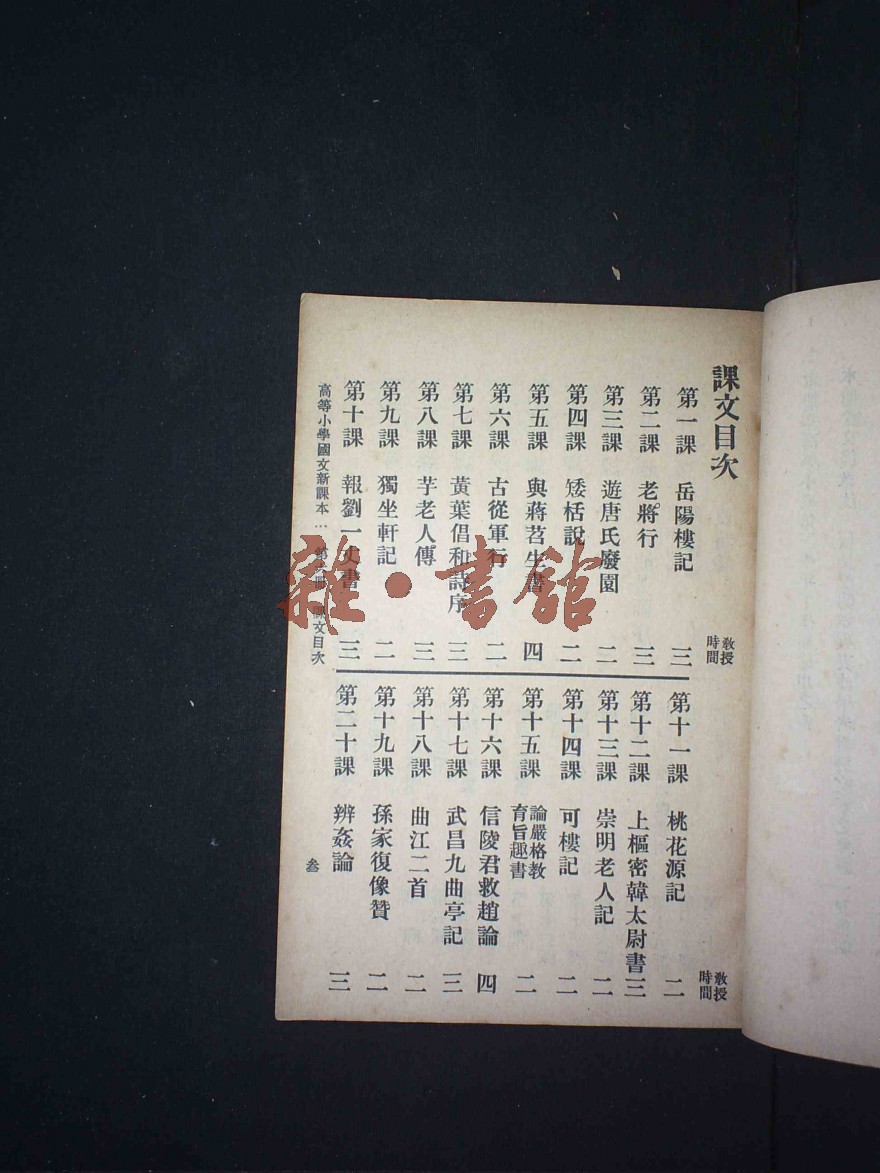 課文目次
教授時間
第一課 岳陽樓記 三
第二課 老將行 三
第三課 遊唐氏廢園 二
第四課 矮栝說 二
第五課 與蔣苕生書 四
第六課 古從軍行 二
第七課 黃葉倡和詩序 三
第八課 芋老人傳 三
第九課 獨坐軒記 二
第十課 報劉一丈書 三
教授時間
第十一課 桃花源記 二
第十二課 上樞密韓太尉書 三
第十三課 崇明老人記 二
第十四課 可樓記 二
第十五課 論嚴格教育旨趣書 二
第十六課 信陵君救趙論 四
第十七課 武昌九曲亭記 三
第十八課 曲江二首 二
第十九課 孫家復像贊 二
第二十課 辨姦論 三
高等小學國文新課本 第 冊 課文目次
叁
雜·書館